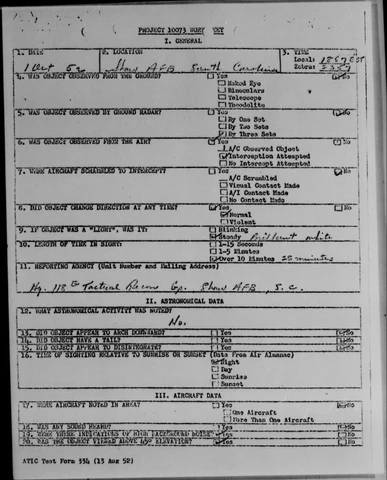 PROJECT 10073 WORK SHEET
I. GENERAL
1. DATE 2. LOCATION 3. TIME
1 Oct 52 Shaw AFB South Carolina Local: 1857 EST
Zebra: 2357
4. WAS OBJECT OBSERVED FROM THE GROUND? Yes No
Naked Eye
Binoculars
Telescope
Theodolite
5. WAS OBJECT OBSERVED BY GROUND RADAR? Yes No
By One Set
By Two Sets
By Three Sets
6. WAS OBJECT OBSERVED FROM THE AIR? Yes No
A/C Observed Object
Interception Attempted
No Intercept Attempted
7. WERE AIRCRAFT SCRAMBLED TO INTERCEPT? Yes No
A/C Scrambled
Visual Contact Made
A/I Contact Made
No Contact Made
8. DID OBJECT CHANGE DIRECTION AT ANY TIME? Yes No
Normal
Violent
9. IF OBJECT WAS A "LIGHT", WAS IT: Blinking
Steady Brilliant white
10. LENGTH OF TIME IN SIGHT: 1-15 Seconds
1-5 Minutes
Over 10 Minutes 23 minutes
11. REPORTING AGENCY (Unit Number and Mailing Address)
Hq. 118th Tactical Recon Gp. Shaw AFB, S.C.
II. ASTRONOMICAL DATA
12. WHAT ASTRONOMICAL ACTIVITY WAS NOTED?
No.
13. DID OBJECT APPEAR TO ARCH DOWNWARD? Yes No
14. DID OBJECT HAVE A TAIL? Yes No
15. DID OBJECT APPEAR TO DISINTEGRATE? Yes No
16. TIME OF SIGHTING RELATIVE TO SUNRISE OR SUNSET (Data From Air Almanac)
Night
Day
Sunrise
Sunset
III. AIRCRAFT DATA
17. WERE AIRCRAFT NOTED IN AREA? Yes No
One Aircraft
More Than One Aircraft
18. WAS ANY SOUND HEARD? Yes No
19. WERE THERE INDICATIONS OF HIGH BACKGROUND NOISE? Yes No
20. WAS OBJECT VIEWED ABOVE 45° ELEVATION? Yes No
ATIC Test Form 334 (13 Aug 52)